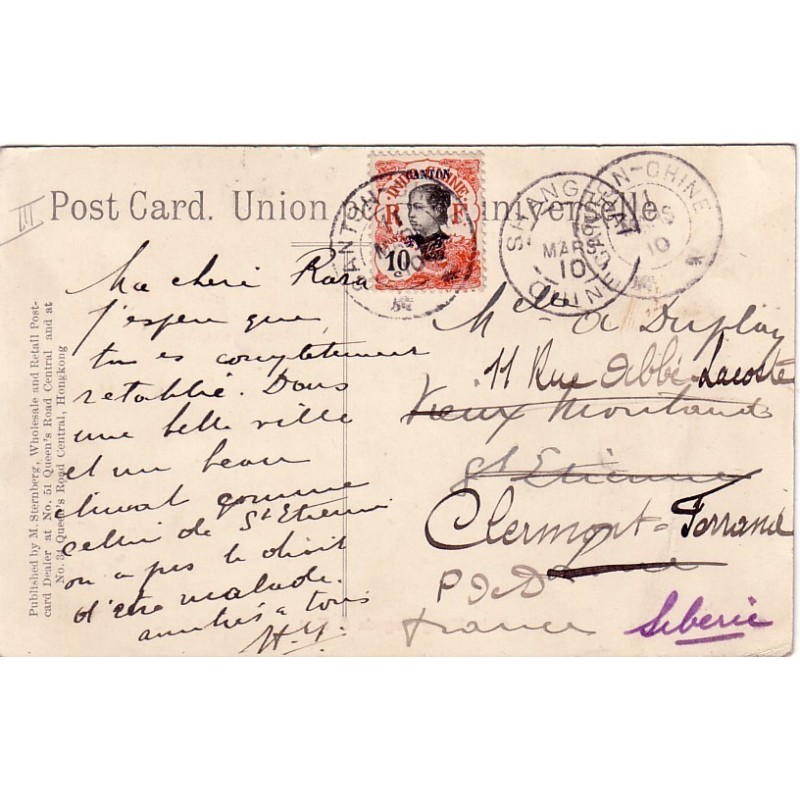 III
Post Card. Union Universelle
CANTON
INDO-CHINE
R F
10
CANTON
SHANG-HAI
MARS
10
CHINE
CHINE
10
Published by M. Sternberg, Wholesale and Retail Post-
card Dealer at No. 51 Queen's Road Central and at
No. 34 Queen's Road Central, Hongkong
Ma cheri Rara
J'espere que
tu es completement
retablie. Dans
une belle ville
et un beau
climat comme
celui de St Etienne
on a pas le droit
d'etre malade.
amitiés a tous
H.Y.
Melle A Duplay
11 Rue Abbé Lacoste
Vieux Montaud
St Etienne
Clermont-Ferrand
P d D
France
Siberie